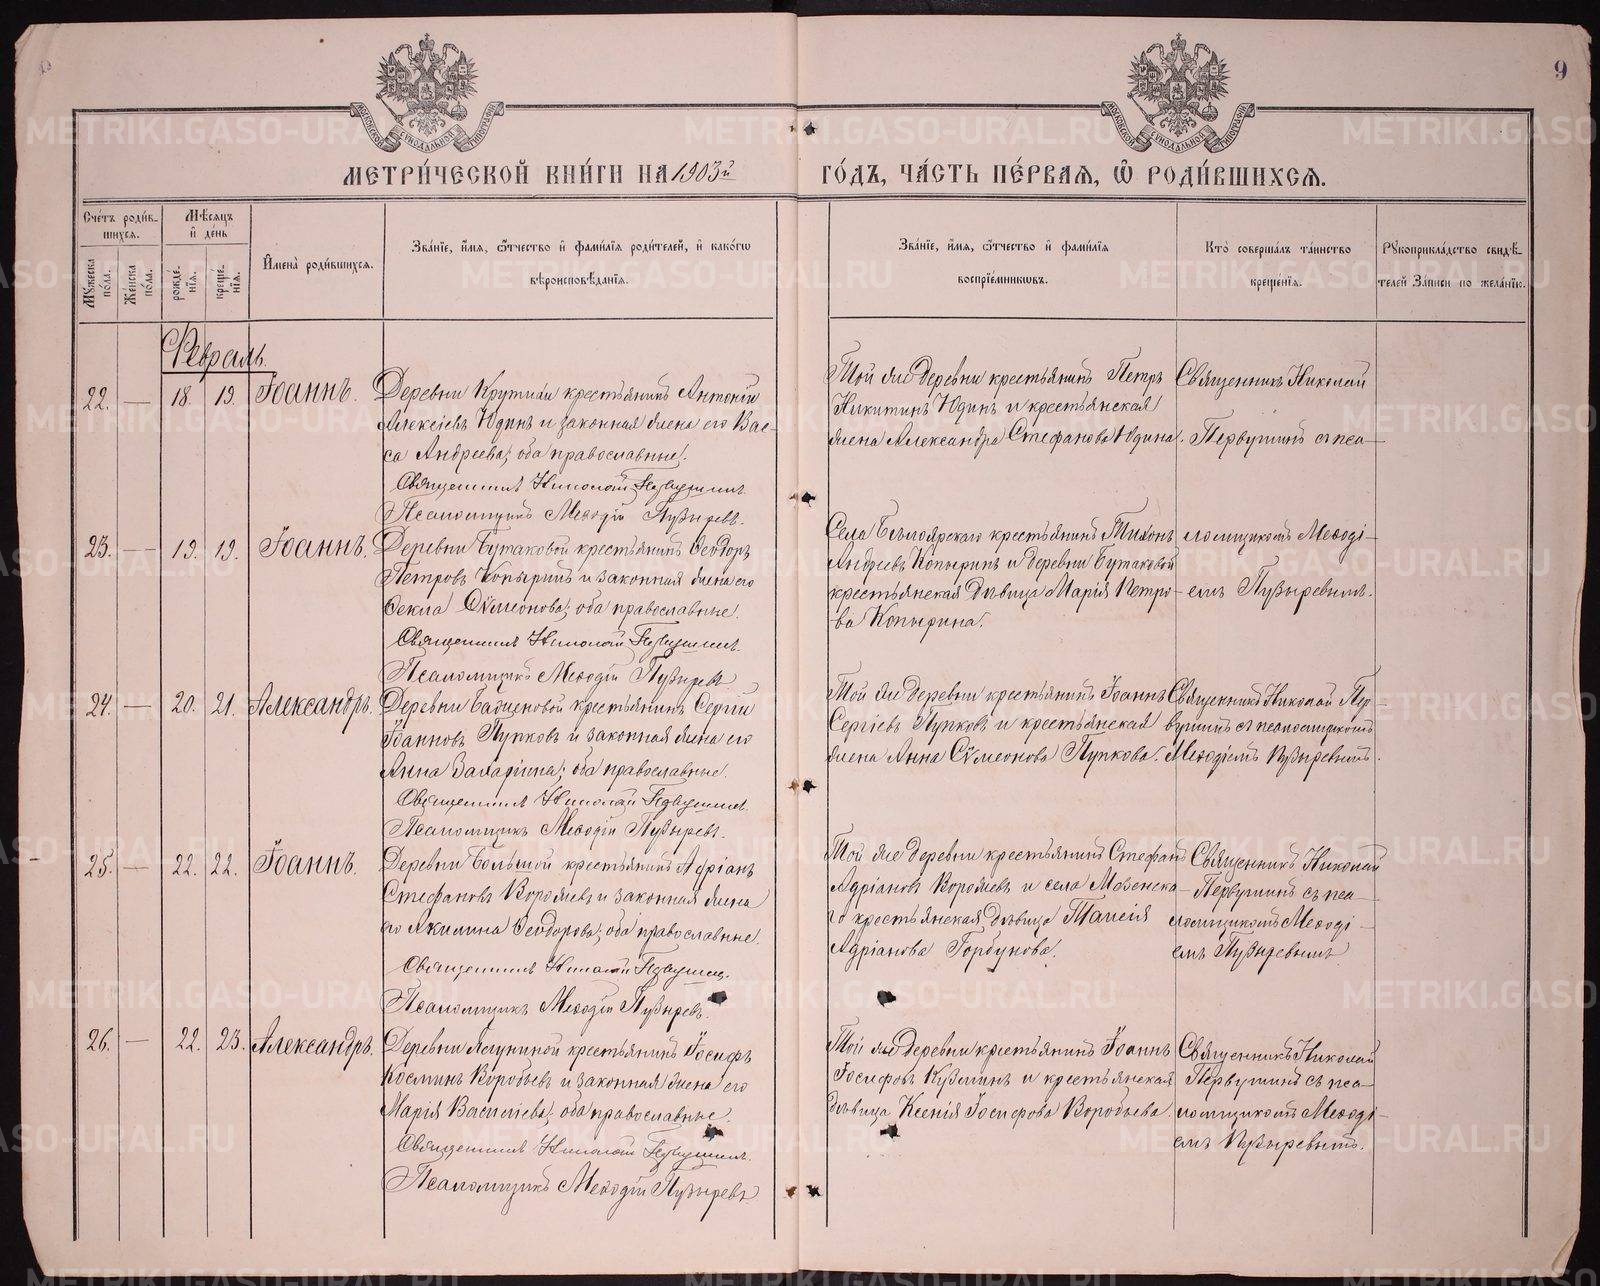 9
МЕТРИ́ЧЕСКОЙ КНИ́ГИ НА 1903й ГО́ДЪ, ЧА́СТЬ ПЕ́РВАЯ, Ѡ҆ РОДИ́ВШИХСЯ.
Сче́тъ роди́вшихся.
Мꙋ́жеска по́ла.
Же́нска по́ла.
Мѣ́сяцъ и҆ де́нь
рожде́нїя.
креще́нїя.
И҆мена̀ роди́вшихся.
Зва́нїе, и҆́мя, ѻ҆́тчество и҆ фами́лїя роди́телей, и҆ како́гѡ
вѣроисповѣ́данїя.
Зва́нїе, и҆́мя, ѻ҆́тчество и҆ фами́лїя
воспрїе́мникѡвъ.
Кто̀ соверша́лъ та́инство
креще́нїя.
Рꙋкоприкла́дство свидѣ́-
телей за́писи по жела́нїю.
Февраль.
22. — 18. 19. Іоаннъ.
Деревни Крутихи крестьянинъ Антоній
Алексіевъ Юдинъ и законная жена его Вас-
са Андреева; оба православные.
Священникъ Николай Первушинъ.
Псаломщикъ Меѳодій Пузыревъ.
Той же деревни крестьянинъ Петръ
Никитинъ Юдинъ и крестьянская
жена Александра Стефанова Юдина.
Священникъ Николай
Первушинъ съ пса-
23. — 19. 19. Іоаннъ.
Деревни Бутаковой крестьянинъ Ѳеодоръ
Петровъ Копыринъ и законная жена его
Ѳекла Сѵмеонова; оба православные.
Священникъ Николай Первушинъ.
Псаломщикъ Меѳодій Пузыревъ
Села Бѣлоярскаго крестьянинъ Тихонъ
Андреевъ Копыринъ и деревни Бутаковой
крестьянская дѣвица Марія Петро-
ва Копырина.
ломщикомъ Меѳоді-
емъ Пузыревымъ.
24. — 20. 21. Александръ.
Деревни крестьянинъ Сергій
Іоанновъ Пупковъ и законная жена его
Анна Захаріина; оба православные.
Священникъ Николай Первушинъ.
Псаломщикъ Меѳодій Пузыревъ.
Той же деревни крестьянинъ Іоаннъ
Сергіевъ Пупковъ и крестьянская
жена Анна Сѵмеонова Пупкова.
Священникъ Николай Пер-
вушинъ съ псаломщикомъ
Меѳодіемъ Пузыревымъ.
25. — 22. 22. Іоаннъ.
Деревни Большой крестьянинъ Адріанъ
Стефановъ и законная жена
его Акилина Ѳеодорова; оба православные.
Священникъ Николай Первушин.
Псаломщикъ Меѳодій Пузыревъ.
Той же деревни крестьянинъ Стефанъ
Адріановъ и села Мезенска-
го крестьянская дѣвица Таисія
Адріанова Горбунова.
Священникъ Николай
Первушинъ съ пса-
ломщикомъ Меѳоді-
емъ Пузыревымъ
26. — 22. 23. Александръ.
Деревни крестьянинъ Іосифъ
Косминъ Воробьевъ и законная жена его
Марія Василіева; оба православные.
Священникъ Николай Первушинъ.
Псаломщикъ Меѳодій Пузыревъ
Той же деревни крестьянинъ Іоаннъ
Іосифовъ Кузминъ и крестьянская
дѣвица Ксенія Іосифова Воробьева.
Священникъ Николай
Первушинъ съ пса-
ломщикомъ Меѳоді-
емъ Пузыревымъ.
METRIKI.GASO-URAL.RU